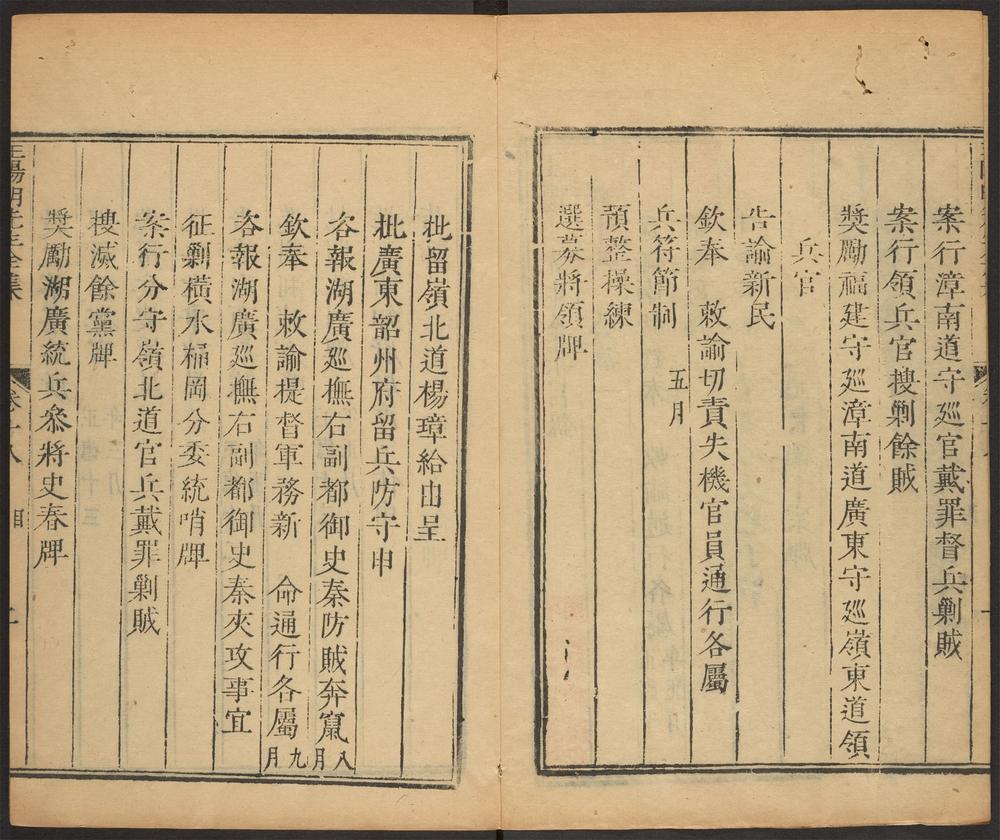 案行漳南道守廵官戴罪督兵剿賊
案行領兵官搜剿餘賊
奬勵福建守廵漳南道廣東守廵嶺東道領
兵官
告諭新民
欽奉　敕諭切責失機官員通行各屬
兵符節制　五月
預整操練
選募將領牌
批留嶺北道楊璋給由呈
批廣東韶州府留兵防守申
咨報湖廣廵撫右副都御史秦防賊奔竄八月
欽奉　敕諭提督軍務新　命通行各屬九月
咨報湖廣廵撫右副都御史秦夾攻事宜
征剿橫水桶岡分委統哨牌
案行分守嶺北道官兵戴罪剿賊
搜滅餘黨牌
奬勵湖廣統兵參將史春牌
王陽明先生全集